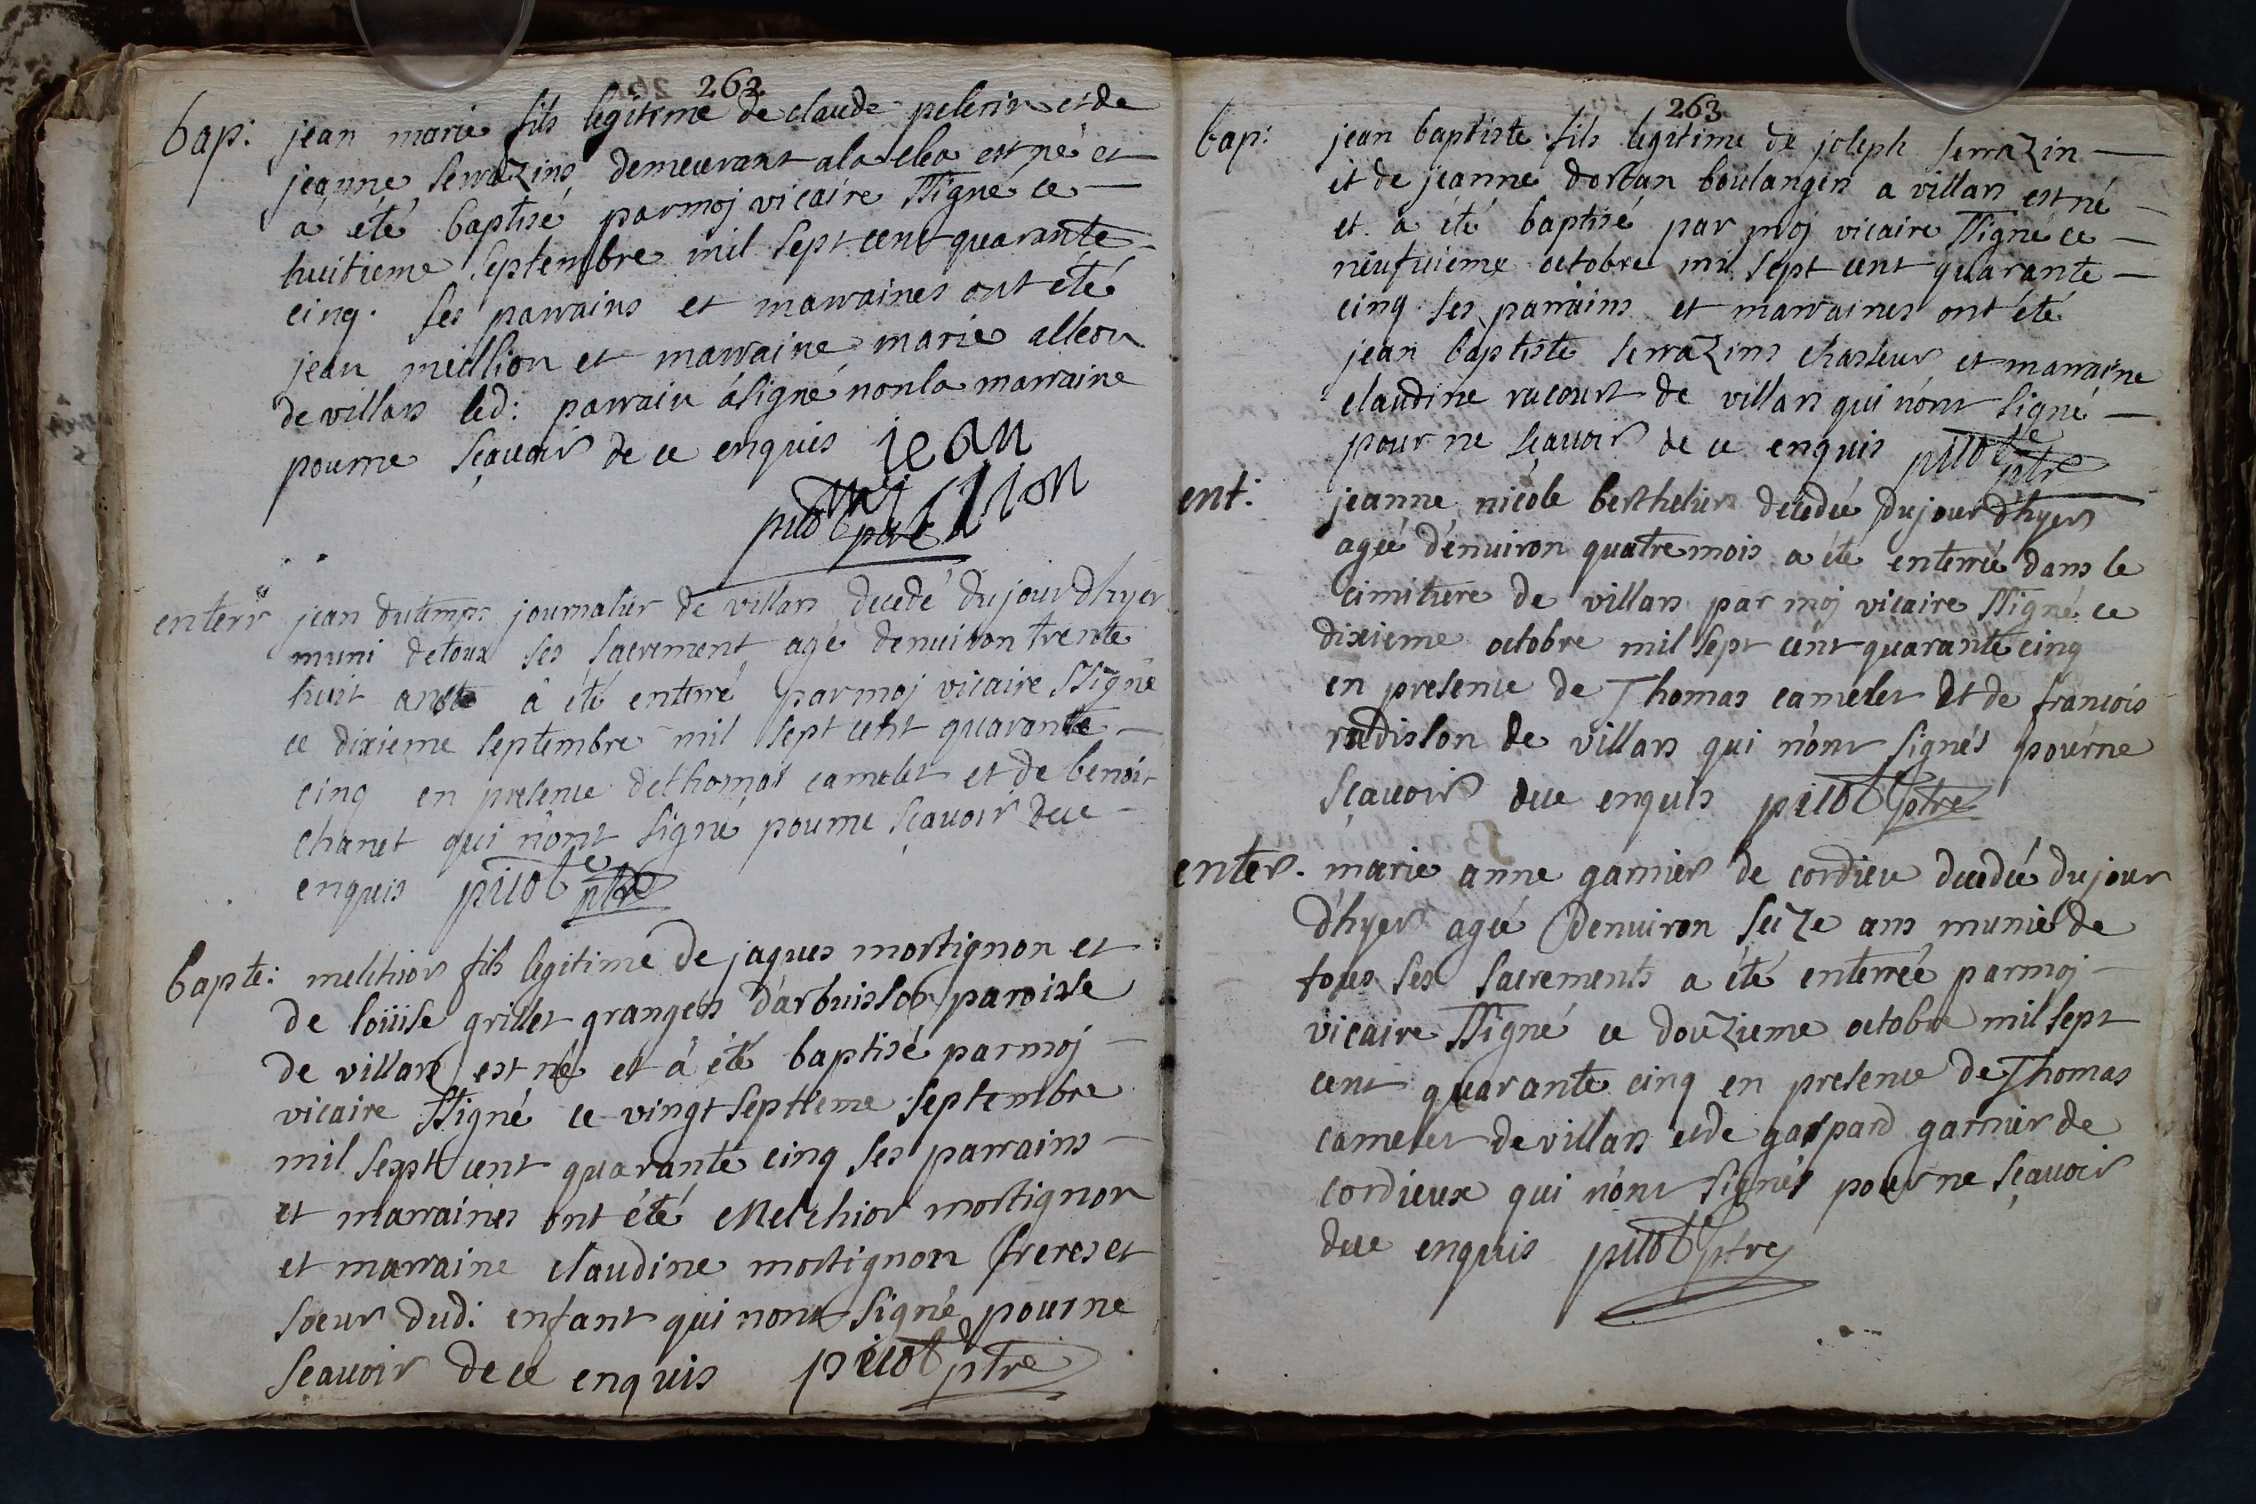 262
bap: jean marie fils legitime de claude pelerin et de
jeanne serrazins demeurant a la elea est né et
a été baptisé par moj vicaire ssigné ce
huitieme septembre mil sept cent quarante
cinq. ses parrains et marraines ont été
jean meillion et marraine marie alleon
de villars led: parrain á signé non la marraine
pourne sçavoir de ce enquis jean
million
picot ptre
enterr jean dutemps journalier de villars decedé du jour dhyer
muni detoux ses sacrement agé denuiron trente
huit ans à été enterré par moj vicaire ssigné
ce dixieme septembre mil sept cent quarante
cinq en presence dethomas camelet et de benoit
chanet qui n'ont signé pourne sçavoir dece
enquis picot ptre
bapte: melchior fils legitime de jaques mortignon et
de loüise grillet grangers d'arbuisson paroisse
de villars est né et à été baptisé par moj
vicaire ssigné ce vingt septieme septembre
mil sept cent quarante cinq ses parrains
et marraines ont été Melchior mortignon
et marraine claudine mortignon freres et
sœur dud: enfant qui nont signé pourne
sçavoir de ce enquis picot ptre
263
bap: jean baptiste fils legitime de joseph serrazin
et de jeanne dortan boulangers a villars est né
et a été baptisé par moj vicaire ssigné ce
neufuieme octobre mil sept cent quarante
cinq ses parrains et marraines ont été
jean baptiste serrazins chasseur et marraine
claudine racourt de villars qui n'ont signé
pour ne sçavoir de ce enquis picot ptre
ent: jeanne nicole berthelier decedée du jour d'hyer
agée d'enuiron quatre mois a été enterrée dans le
cimitiere de villars par moj vicaire ssigné ce
dixieme octobre mil sept cent quarante cinq
en presence de Thomas camelet et de francois
radisson de villars qui n'ont signés pourne
sçavoir dece enquis picot ptre
enter. marie anne garnier de cordieu decedée du jour
d'hyer agée denuiron seize ans munie de
tous ses sacrements a été enterrée par moj
vicaire ssigné ce douzieme octobre mil sept
cent quarante cinq en presence de Thomas
camelet de villars et de gaspard garnier de
cordieux qui n'ont signés pour ne sçavoir
dece enquis picot ptre